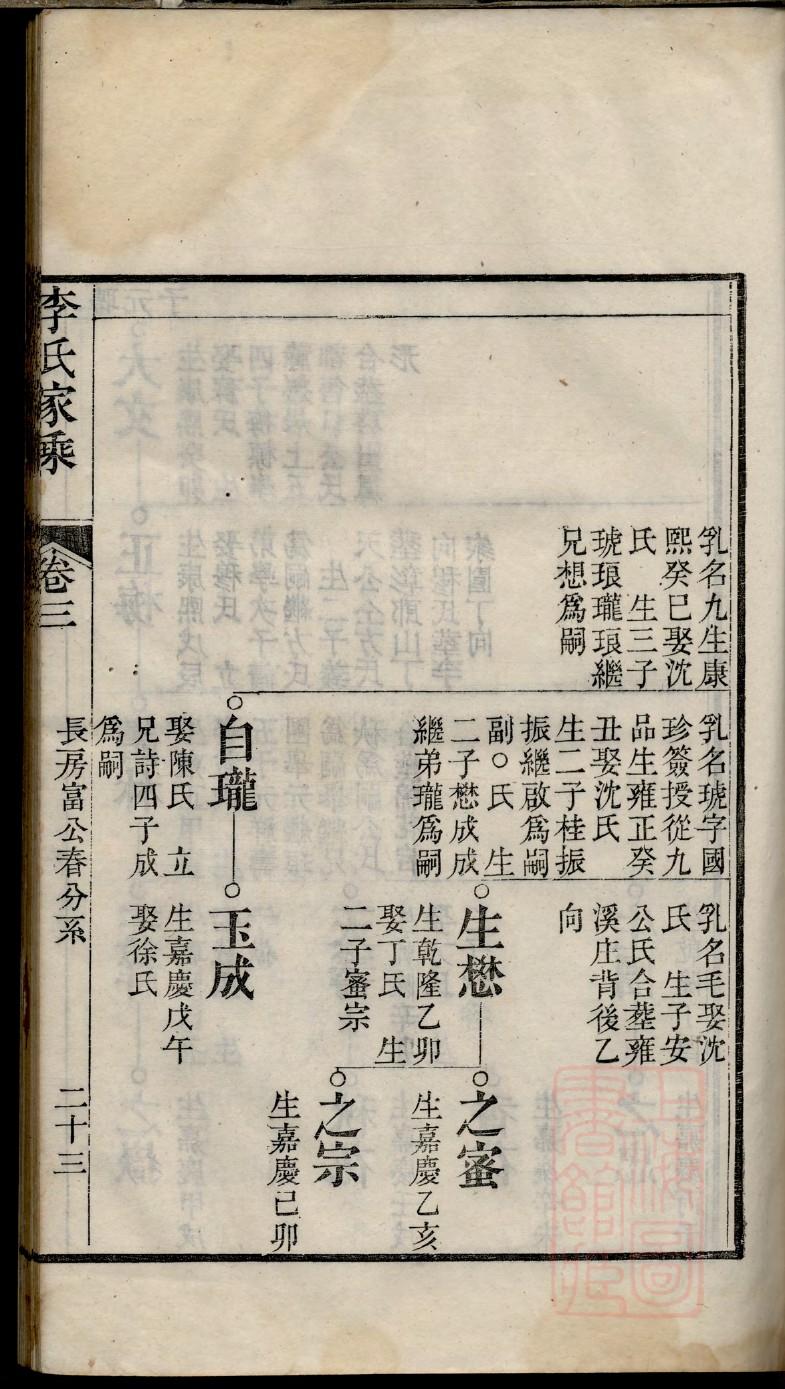 乳名九生康
熙癸巳娶沈
氏　生三子
琥琅瓏琅繼
兄想爲嗣
乳名琥字國
珍簽授從九
品生雍正癸
丑娶沈氏
生二子桂振
振繼啟爲嗣
副○氏　生
二子懋成成
繼弟瓏爲嗣
自瓏
娶陳氏　立
兄詩四子成
爲嗣
乳名毛娶沈
氏　生子安
公氏合塟雍
溪庄背後乙
向
生懋
生乾隆乙卯
娶丁氏　生
二子蜜宗
玉成
生嘉慶戊午
娶徐氏
之蜜
生嘉慶乙亥
之宗
生嘉慶己卯
長房富公春分系
二十三
李氏家乘
卷三